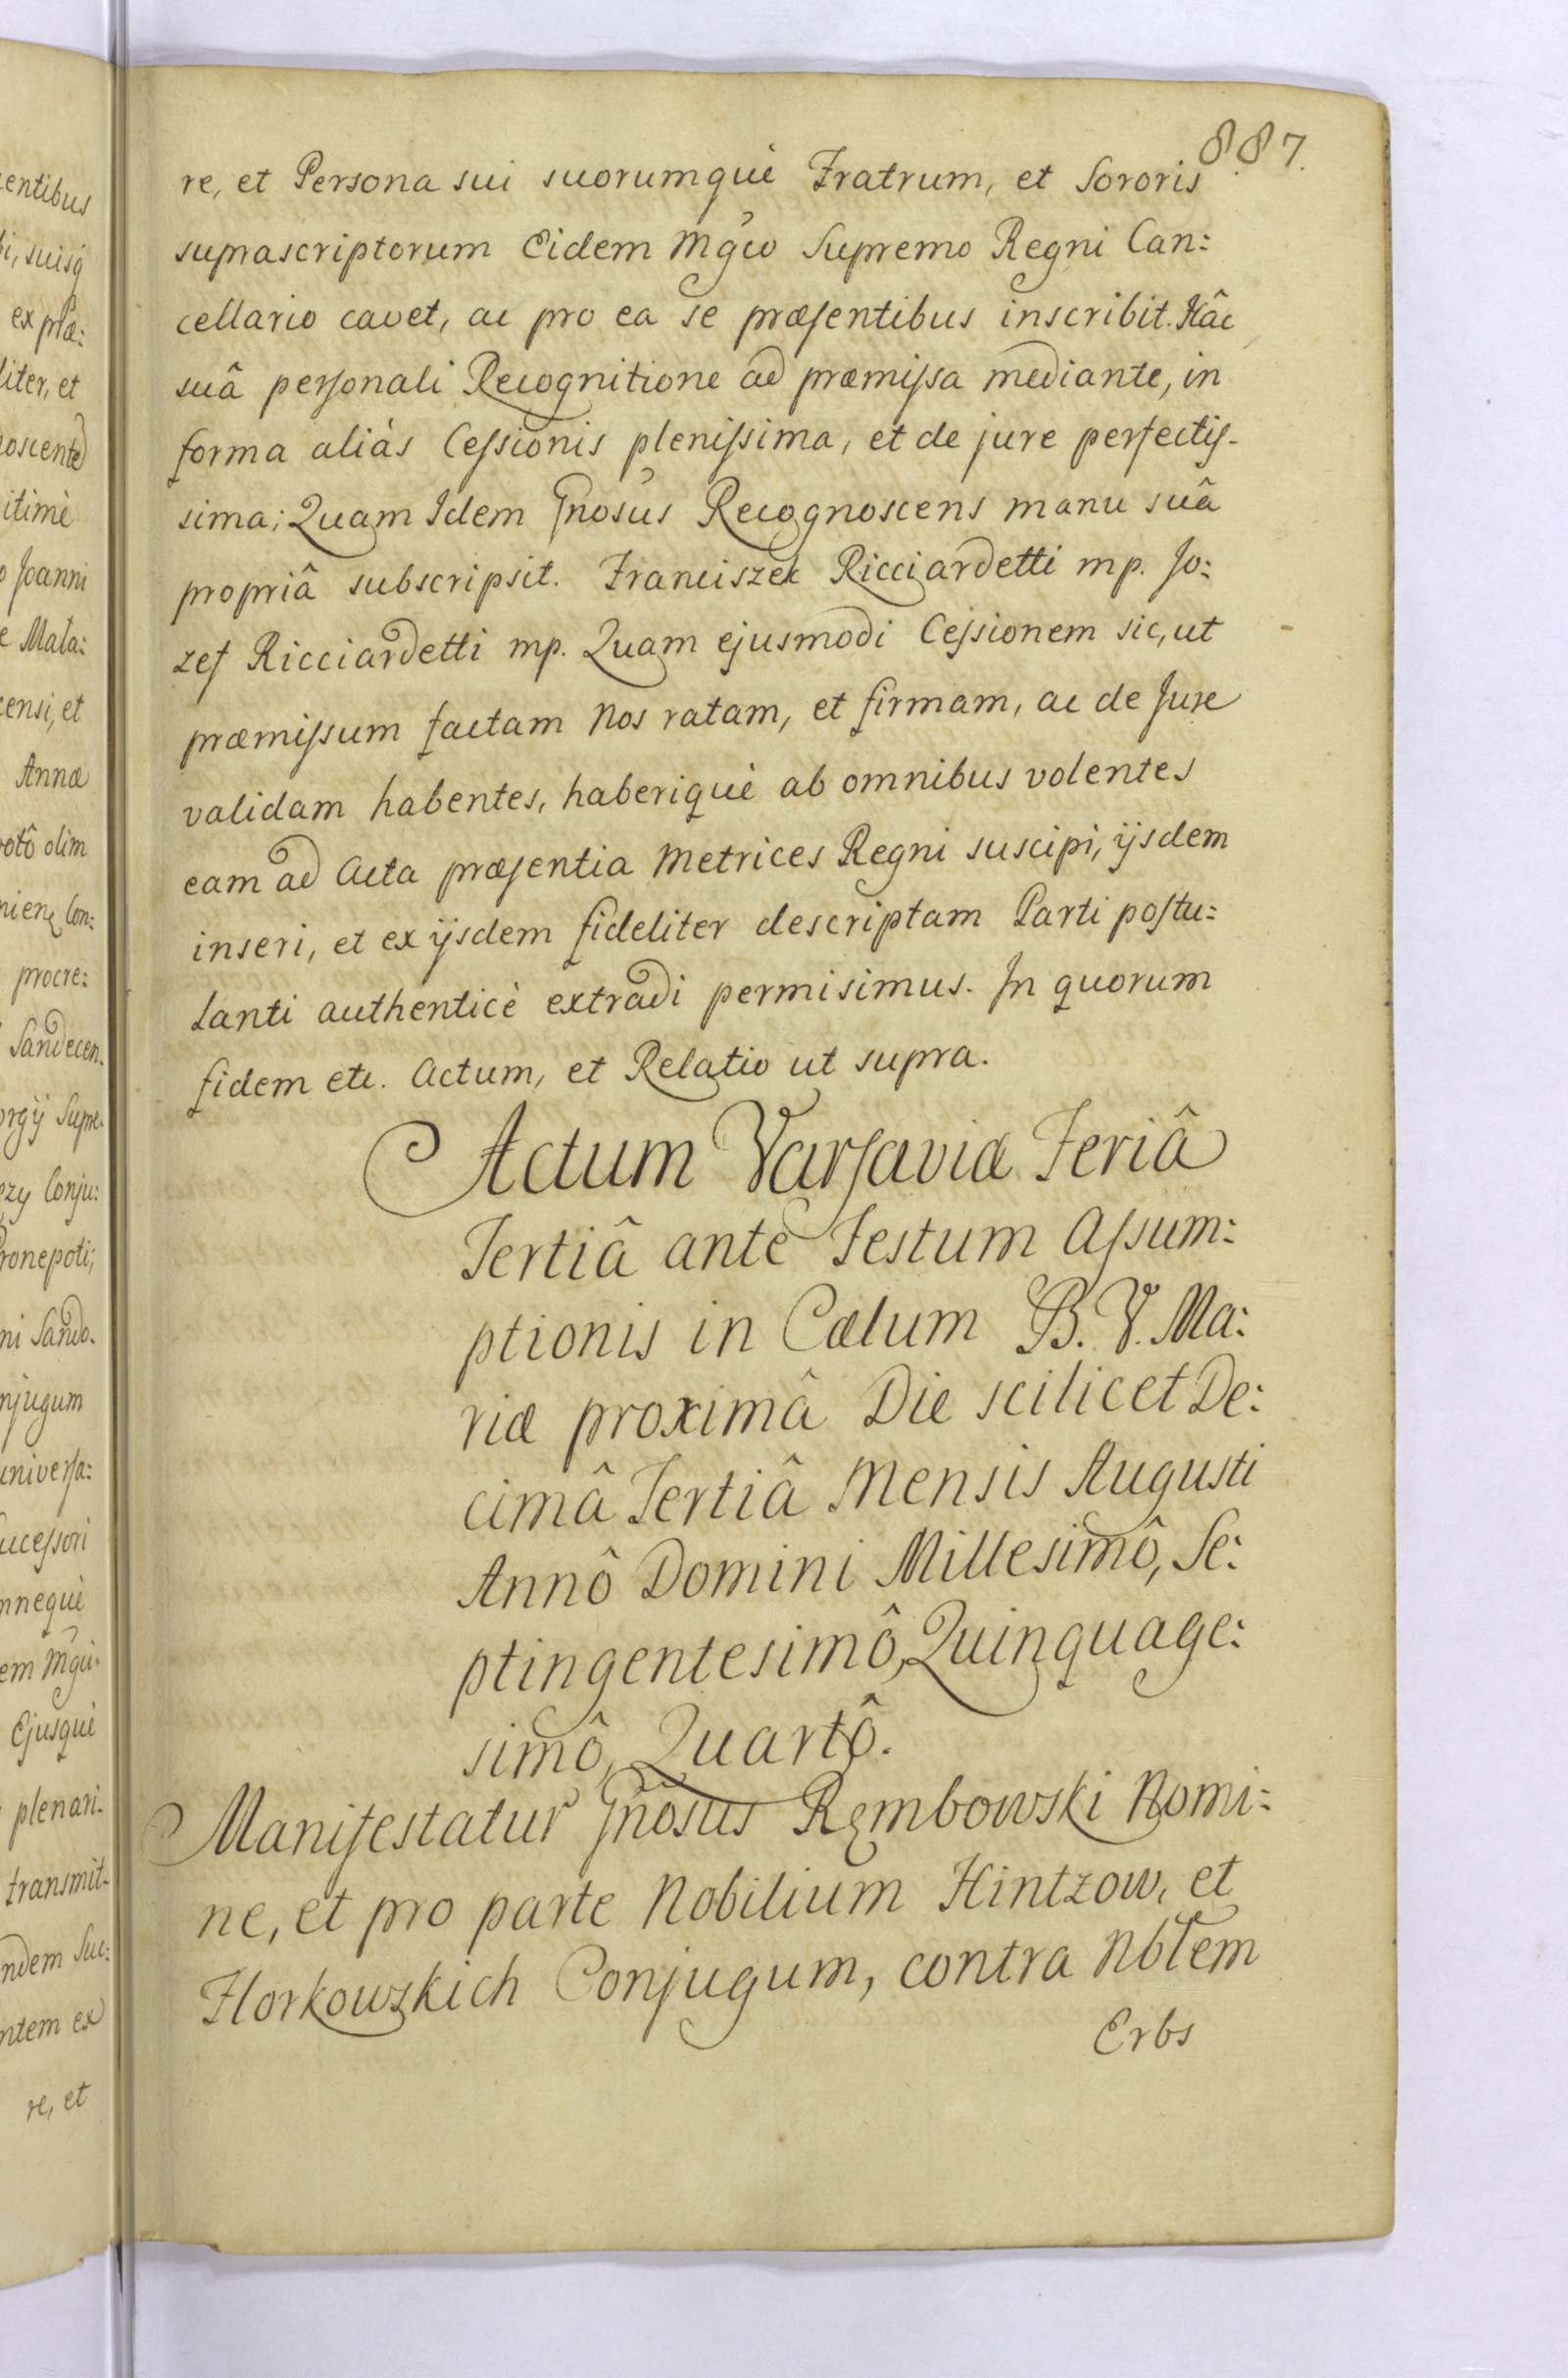 887.
re, et Persona sui suorumquè Fratrum, et Sororis
suprascriptorum Eidem Mgco Supremo Regni Can:
cellario cavet, ac pro ea se præsentibus inscribit. Hâc
suâ personali Recognitione ad præmissa mediante, in
forma aliàs Cessionis plenissima, et de jure perfectis-
sima; Quam Idem Gnosus Recognoscens manu suâ
propriâ subscripsit. Franciszek Ricciardetti mp. Jo:
zef Ricciardetti mp. Quam ejusmodi Cessionem sic, ut
præmissum factam Nos ratam, et firmam, ac de Jure
validam habentes, haberiquè ab omnibus volentes
eam ad Acta præsentia Metrices Regni suscipi, ijsdem
inseri, et ex ijsdem fideliter descriptam Parti postu:
lanti authenticè extradi permisimus. In quorum
fidem etc. Actum, et Relatio ut supra.
Actum Varsaviæ Feriâ
Tertiâ ante Festum Assum:
ptionis in Cælum B. V. Ma:
riæ proximâ Die scilicet De:
cimâ Tertiâ Mensis Augusti
Annô Domini Millesimô, Se:
ptingentesimô, Quinquage:
simô, Quartô.
Manifestatur Gnosus Rembowski Nomi:
ne, et pro parte Nobilium Hintzow, et
Florkowskich Conjugum, contra Nobtem
Erbs
entibus
i, suisq
ex præ:
liter, et
oscente
itimè
o Joanni
e Mała:
censi, et
Annæ
votô olim
Con:
procre:
Sandecen.
orgij Supre.
ezy Conju:
ronepoti;
ni Sando.
njugum
universa:
uccessori
nnequè
em Mgci
Ejusquè
plenari-
transmit-
ndem Suc:
ntem ex
re, et